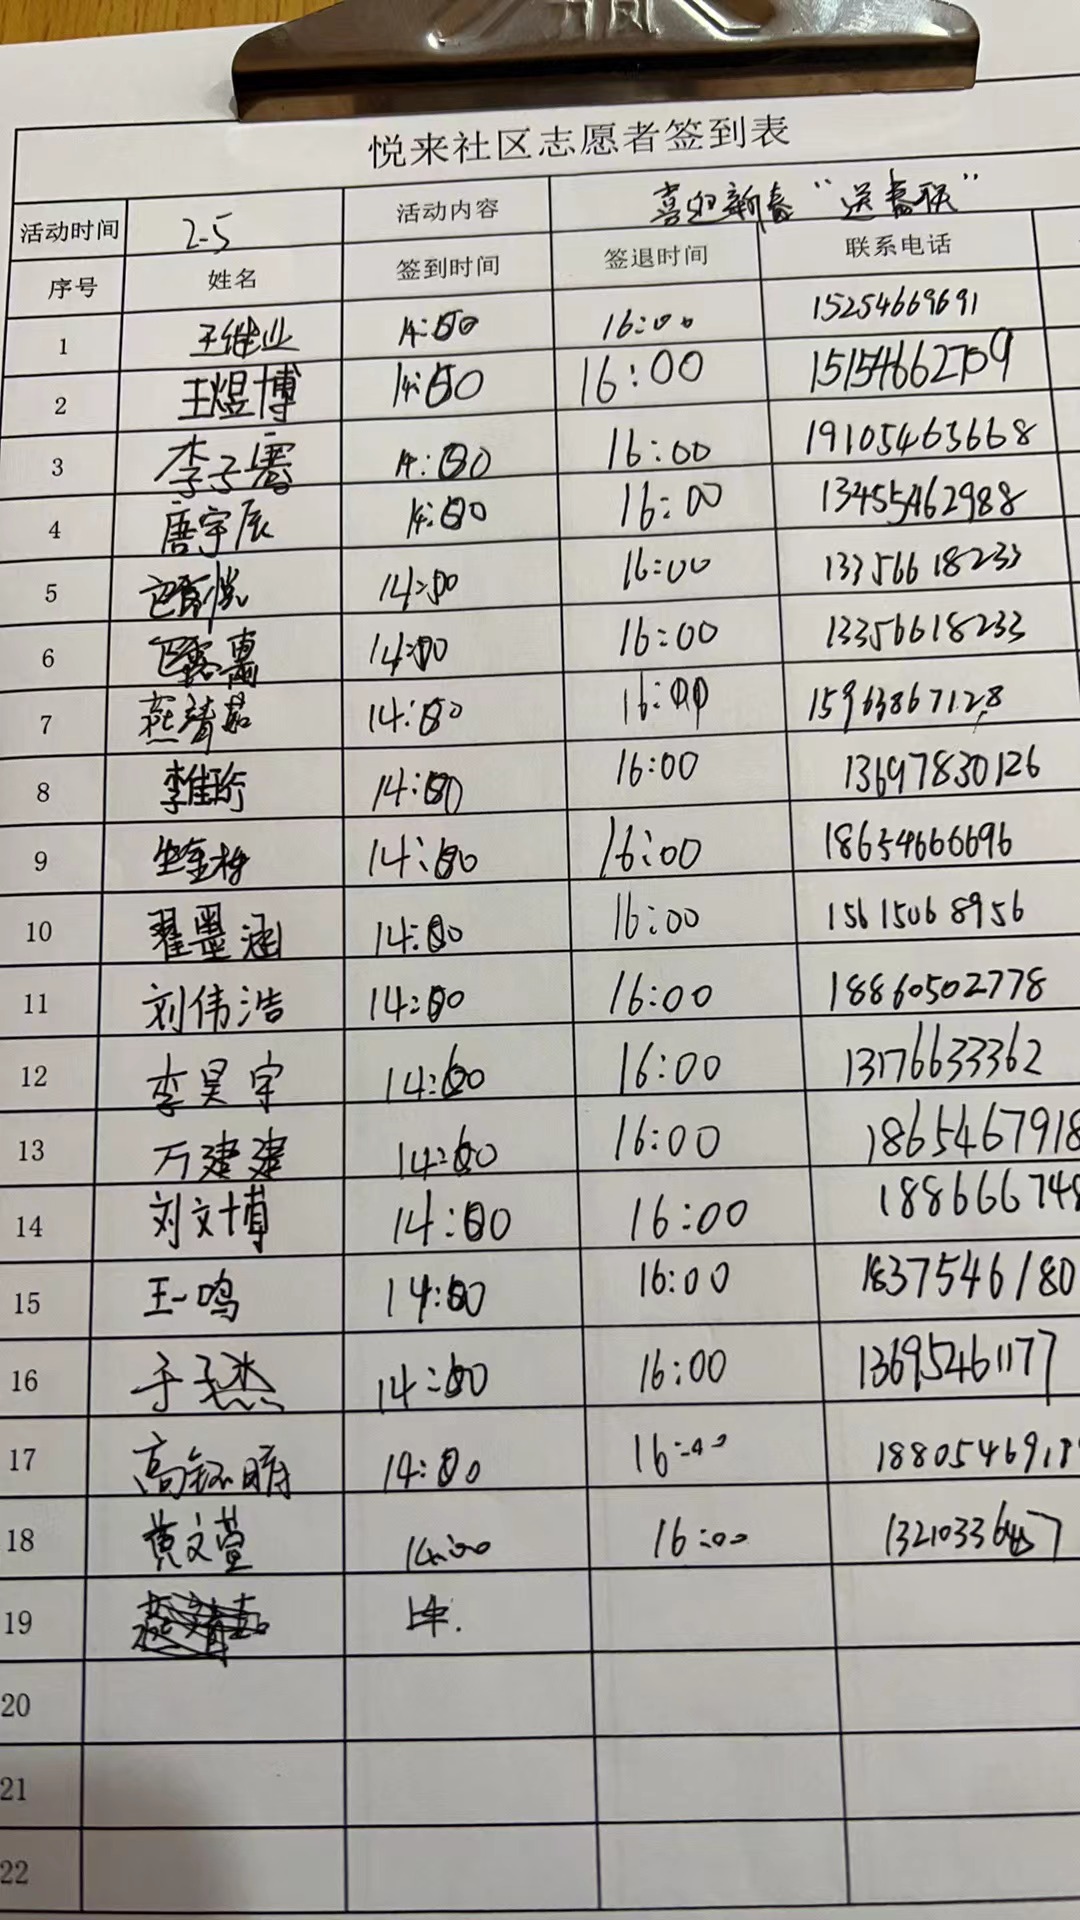 悦来社区志愿者签到表
活动时间 2-5 活动内容 喜迎新春“送春联”
序号 姓名 签到时间 签退时间 联系电话
1 王继业 14:00 16:00 15254669691
2 王煜博 14:00 16:00 15154662709
3 李子骞 14:00 16:00 19105463668
4 唐宇辰 14:00 16:00 13455462988
5 14:00 16:00 13356618233
6 14:00 16:00 13356618233
7 燕靖茹 14:00 16:00 15963867128
8 李佳珩 14:00 16:00 13697830126
9 14:00 16:00 18654666696
10 翟墨涵 14:00 16:00 15615068956
11 刘伟浩 14:00 16:00 18860502778
12 李昊宇 14:00 16:00 13176633362
13 万建建 14:00 16:00 1865467918
14 刘文博 14:00 16:00 188666748
15 王一鸣 14:00 16:00 1837546180
16 于子杰 14:00 16:00 13695461177
17 14:00 16:00 1880546918
18 黄文萱 14:00 16:00
19
20
21
22